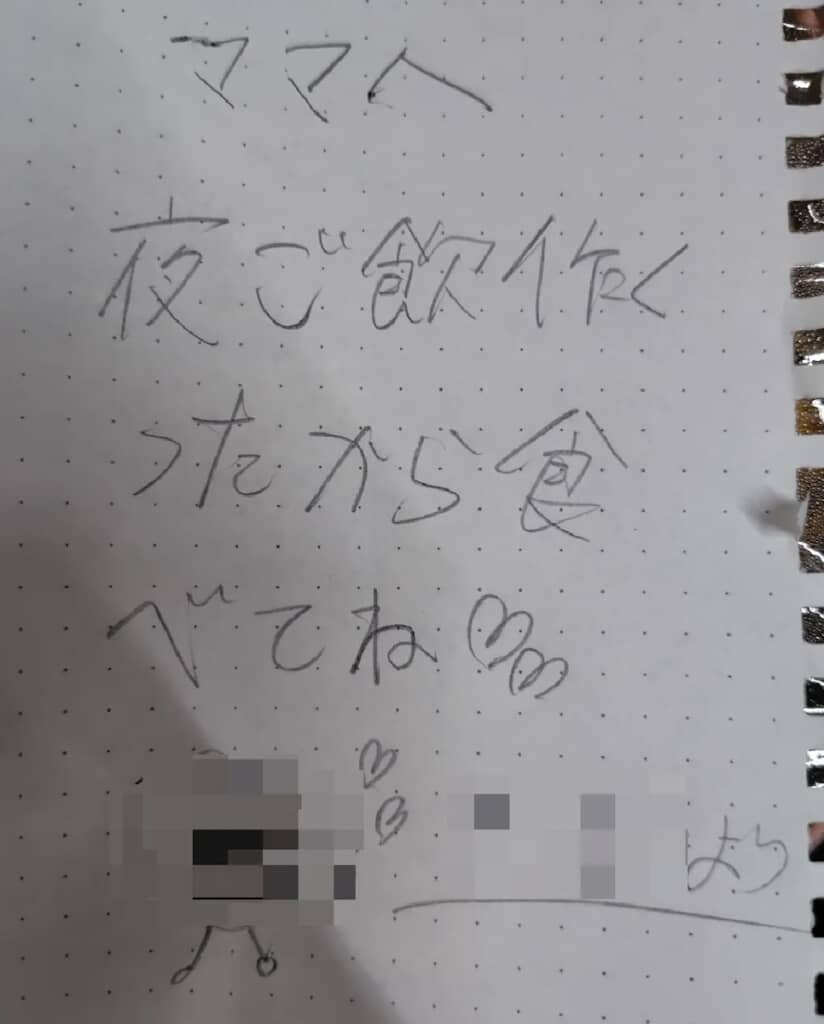 ママへ
夜ご飲作く
ったから食
べてね♡♡
より